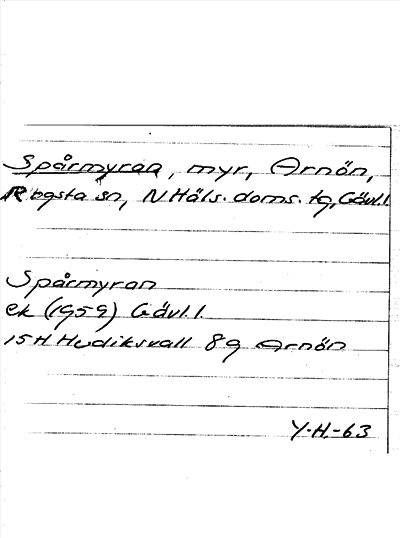 Spårmyran, myr, Arnön,
Rogsta sn, N Häls. doms. tg, Gävl. l.
Spårmyran
ek (1959) Gävl. l.
15H Hudiksvall 8g Arnön
Y.H.-63